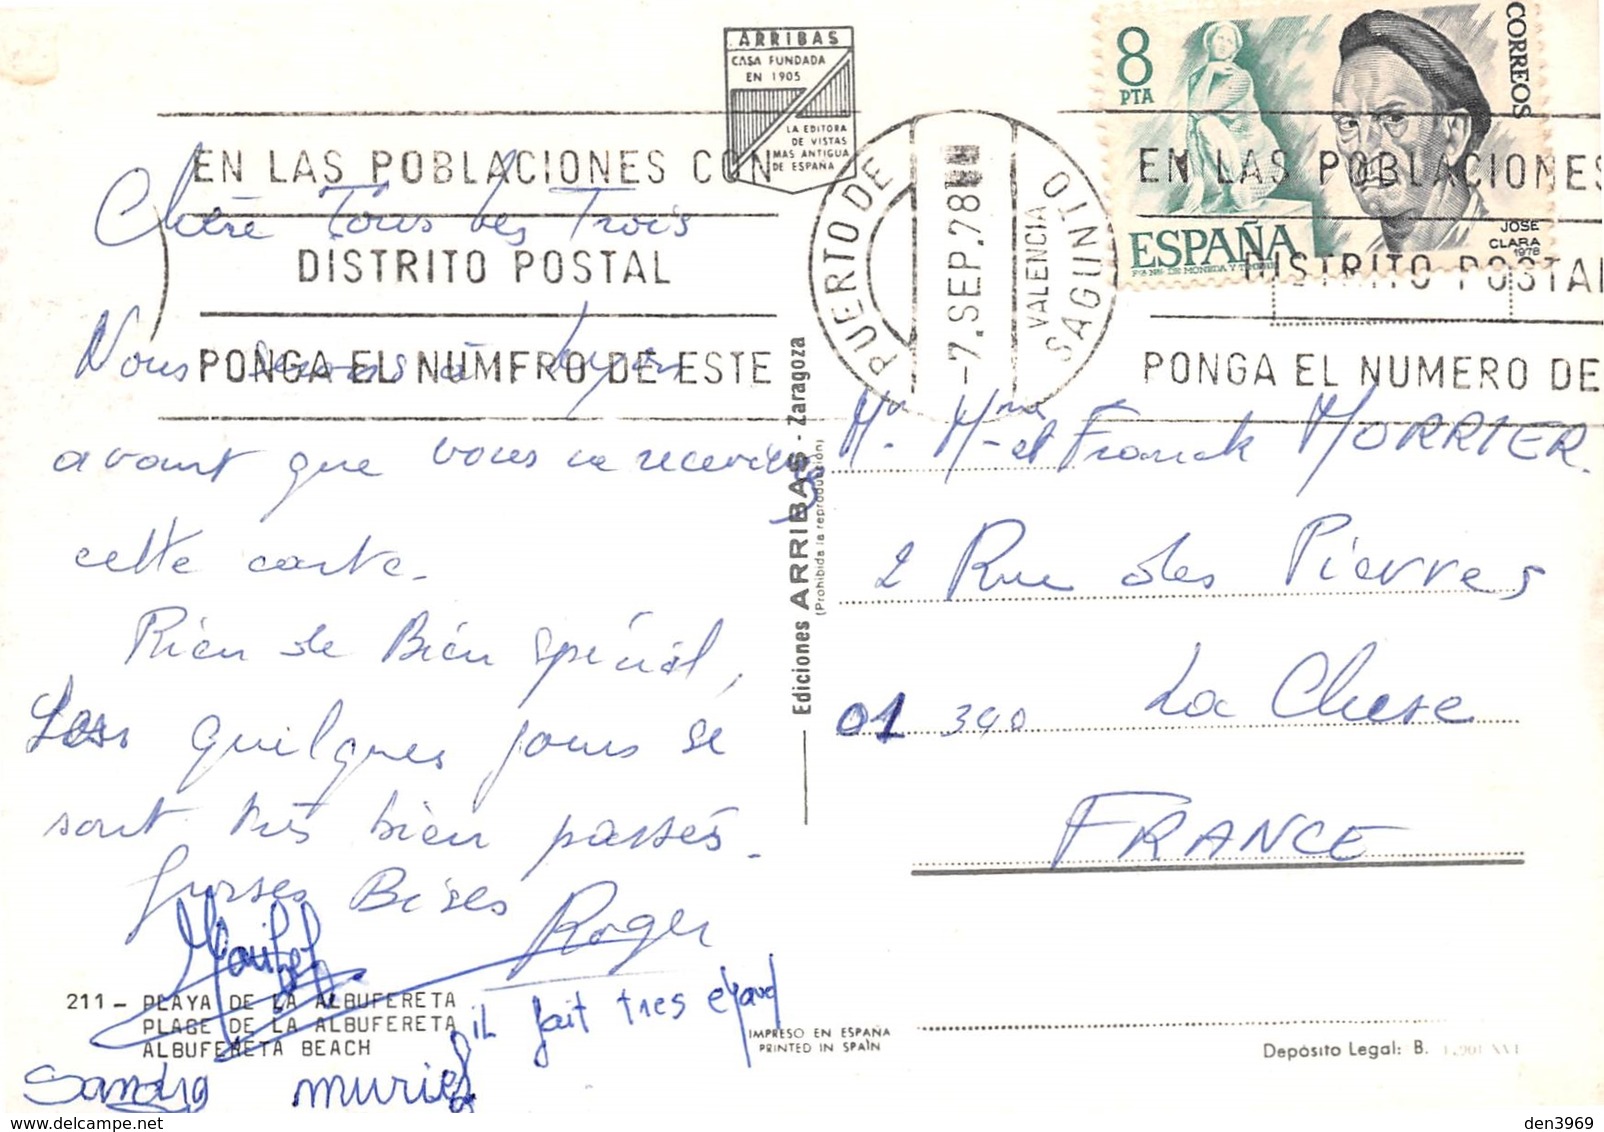 ARRIBAS
CASA FUNDADA
EN 1905
LA EDITORA
DE VISTAS
MAS ANTIGUA
DE ESPAÑA
8
PTA
CORREOS
JOSE
CLARA
1978
ESPAÑA
EN LAS POBLACIONES CON
DISTRITO POSTAL
PONGA EL NUMERO DE ESTE
PUERTO DE SAGUNTO
VALENCIA
-7.SEP.78
EN LAS POBLACIONES
DISTRITO POSTAL
PONGA EL NUMERO DE
Chère Tous les Trois
Nous serons à Lyon
avant que vous ne receviez
cette carte.
Rien de Bien Spécial,
Les quelques jours se
sont très bien passés.
Grosses Bises
Roger
il fait tres chaud
Sandra muriel
211 - PLAYA DE LA ALBUFERETA
PLAGE DE LA ALBUFERETA
ALBUFERETA BEACH
Ediciones ARRIBAS - Zaragoza
(Prohibida la reproducción)
Mr. Mme et Franck MORRIER.
2 Rue des Pierres
01 390 La Chese
FRANCE
IMPRESO EN ESPAÑA
PRINTED IN SPAIN
Depósito Legal: B.
den3969